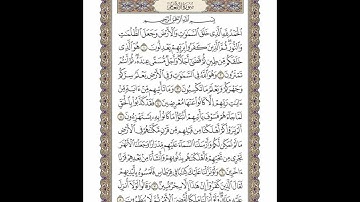 سورة الأنعام
بِسْمِ ٱللَّهِ ٱلرَّحْمَٰنِ ٱلرَّحِيمِ
ٱلْحَمْدُ لِلَّهِ ٱلَّذِى خَلَقَ ٱلسَّمَٰوَٰتِ وَٱلْأَرْضَ وَجَعَلَ ٱلظُّلُمَٰتِ
وَٱلنُّورَ ثُمَّ ٱلَّذِينَ كَفَرُوا۟ بِرَبِّهِمْ يَعْدِلُونَ ١ هُوَ ٱلَّذِى
خَلَقَكُم مِّن طِينٍ ثُمَّ قَضَىٰٓ أَجَلًا وَأَجَلٌ مُّسَمًّى عِندَهُۥ ثُمَّ أَنتُمْ
تَمْتَرُونَ ٢ وَهُوَ ٱللَّهُ فِى ٱلسَّمَٰوَٰتِ وَفِى ٱلْأَرْضِ يَعْلَمُ سِرَّكُمْ
وَجَهْرَكُمْ وَيَعْلَمُ مَا تَكْسِبُونَ ٣ وَمَا تَأْتِيهِم مِّنْ ءَايَةٍ مِّنْ
ءَايَٰتِ رَبِّهِمْ إِلَّا كَانُوا۟ عَنْهَا مُعْرِضِينَ ٤ فَقَدْ كَذَّبُوا۟ بِٱلْحَقِّ
لَمَّا جَآءَهُمْ فَسَوْفَ يَأْتِيهِمْ أَنۢبَٰٓؤُا۟ مَا كَانُوا۟ بِهِۦ يَسْتَهْزِءُونَ ٥
أَلَمْ يَرَوْا۟ كَمْ أَهْلَكْنَا مِن قَبْلِهِم مِّن قَرْنٍ مَّكَّنَّٰهُمْ فِى ٱلْأَرْضِ
مَا لَمْ نُمَكِّن لَّكُمْ وَأَرْسَلْنَا ٱلسَّمَآءَ عَلَيْهِم مِّدْرَارًا وَجَعَلْنَا ٱلْأَنْهَٰرَ
تَجْرِى مِن تَحْتِهِمْ فَأَهْلَكْنَٰهُم بِذُنُوبِهِمْ وَأَنشَأْنَا مِنۢ بَعْدِهِمْ قَرْنًا
ءَاخَرِينَ ٦ وَلَوْ نَزَّلْنَا عَلَيْكَ كِتَٰبًا فِى قِرْطَاسٍ فَلَمَسُوهُ بِأَيْدِيهِمْ
لَقَالَ ٱلَّذِينَ كَفَرُوٓا۟ إِنْ هَٰذَآ إِلَّا سِحْرٌ مُّبِينٌ ٧ وَقَالُوا۟ لَوْلَآ أُنزِلَ
عَلَيْهِ مَلَكٌ وَلَوْ أَنزَلْنَا مَلَكًا لَّقُضِىَ ٱلْأَمْرُ ثُمَّ لَا يُنظَرُونَ ٨